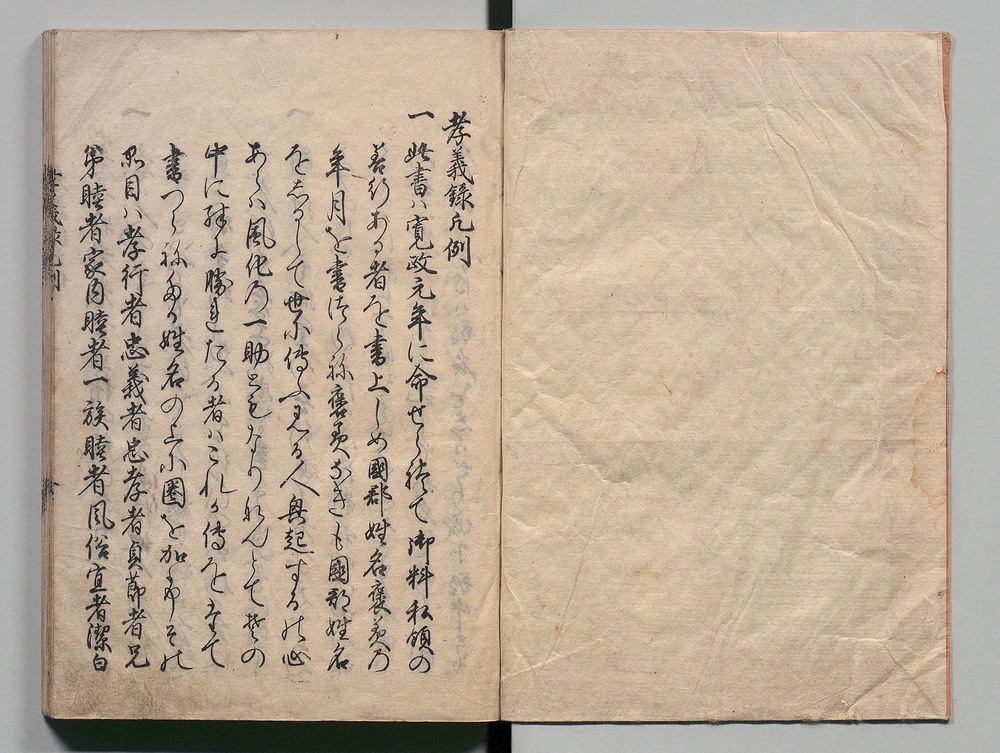 孝義録凡例
一 此書ハ寛政元年に命せられて御料私領の
善行ある者を書上しめ國郡姓名褒美の
年月を書つらね褒美なきも國郡姓名
をしるして世に傳ふ見る人興起するの心
あらハ風化の一助ともなりなんとて其の
中に殊に勝れたる者ハこれか傳をたて
書つらねたる姓名の上に圏を加ふその
品目ハ孝行者忠義者忠孝者貞節者兄
弟睦者家内睦者一族睦者風俗宜者潔白